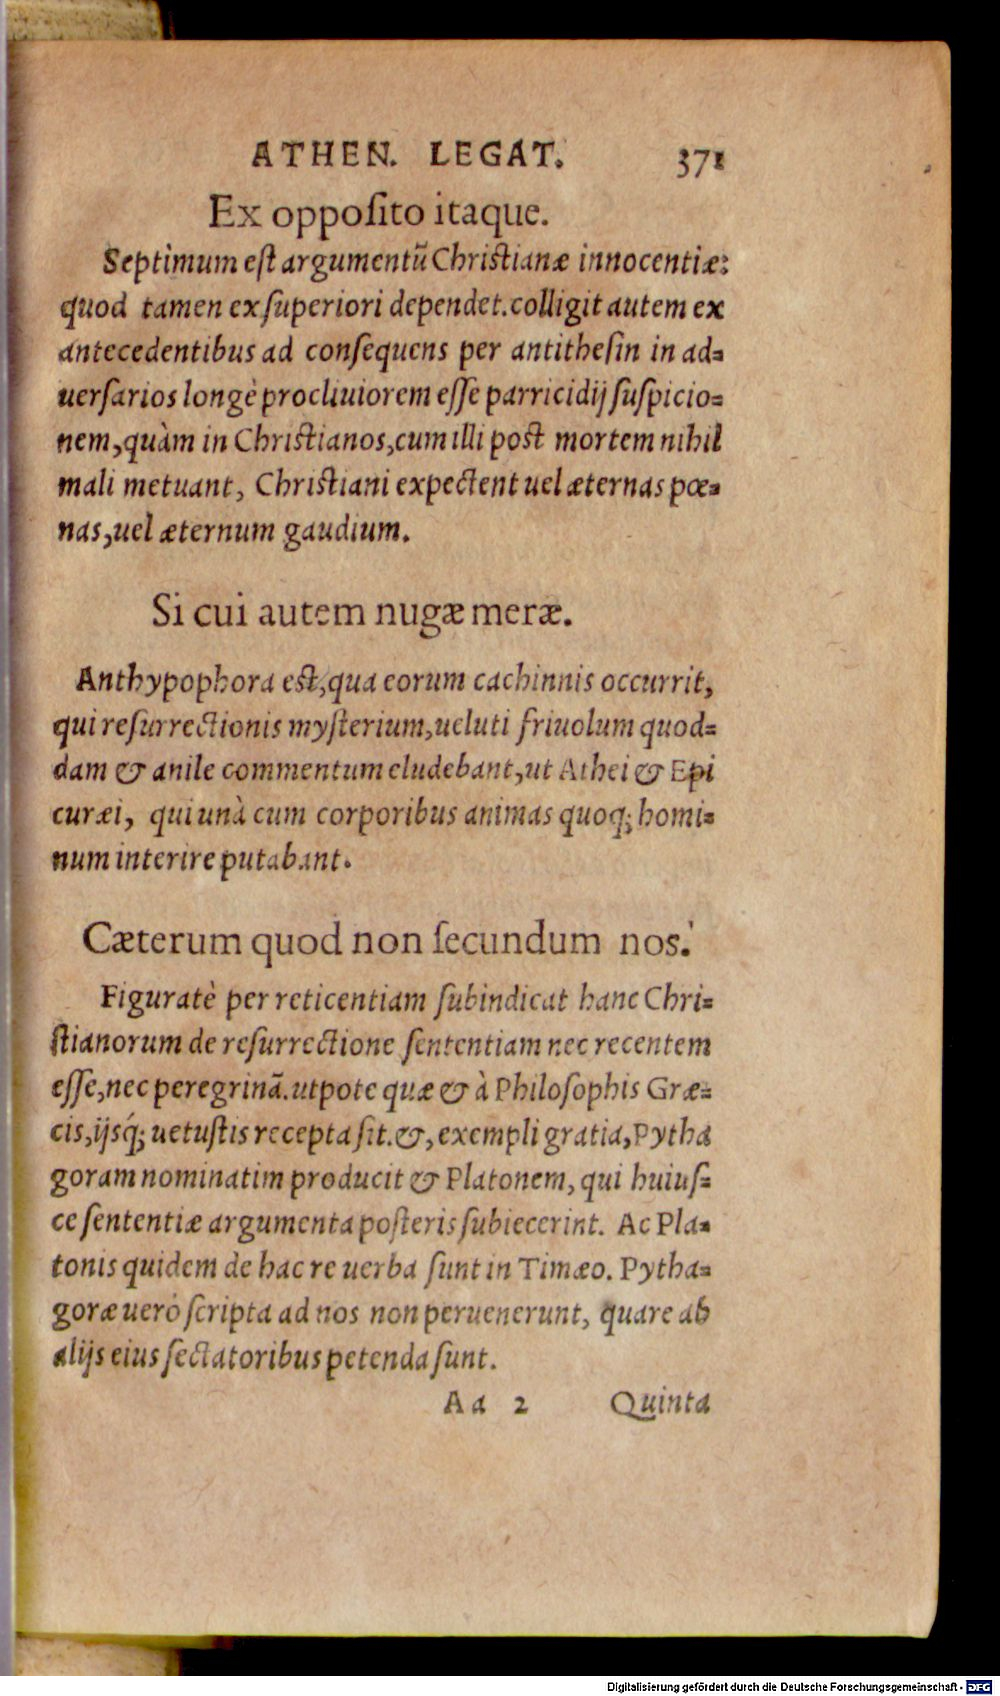 ATHEN. LEGAT. 371
Ex oppoſito itaque.
Septimum eſt argumentũ Chriſtianæ innocentiæ:
quod tamen ex ſuperiori dependet. colligit autem ex
antecedentibus ad conſequens per antitheſin in ad=
uerſarios longè procliuiorem eſſe parricidij ſuſpicio=
nem, quàm in Chriſtianos, cum illi poſt mortem nihil
mali metuant, Chriſtiani expectent uel æternas pœ=
nas, uel æternum gaudium.
Si cui autem nugæ meræ.
Anthypophora eſt, qua eorum cachinnis occurrit,
qui reſurrectionis myſterium, ueluti friuolum quod=
dam & anile commentum eludebant, ut Athei & Epi
curæi, qui unà cum corporibus animas quoq; homi=
num interire putabant.
Cæterum quod non ſecundum nos.
Figuratè per reticentiam ſubindicat hanc Chri=
ſtianorum de reſurrectione ſententiam nec recentem
eſſe, nec peregrinã. utpote quæ & à Philoſophis Græ=
cis, ijsq́; uetuſtis recepta ſit. &, exempli gratia, Pytha
goram nominatim producit & Platonem, qui huiuſ=
ce ſententiæ argumenta poſteris ſubiecerint. Ac Pla=
tonis quidem de hac re uerba ſunt in Timæo. Pytha=
goræ uerò ſcripta ad nos non peruenerunt, quare ab
alijs eius ſectatoribus petenda ſunt.
Aa 2 Quinta
Digitalisierung gefördert durch die Deutsche Forschungsgemeinschaft - DFG